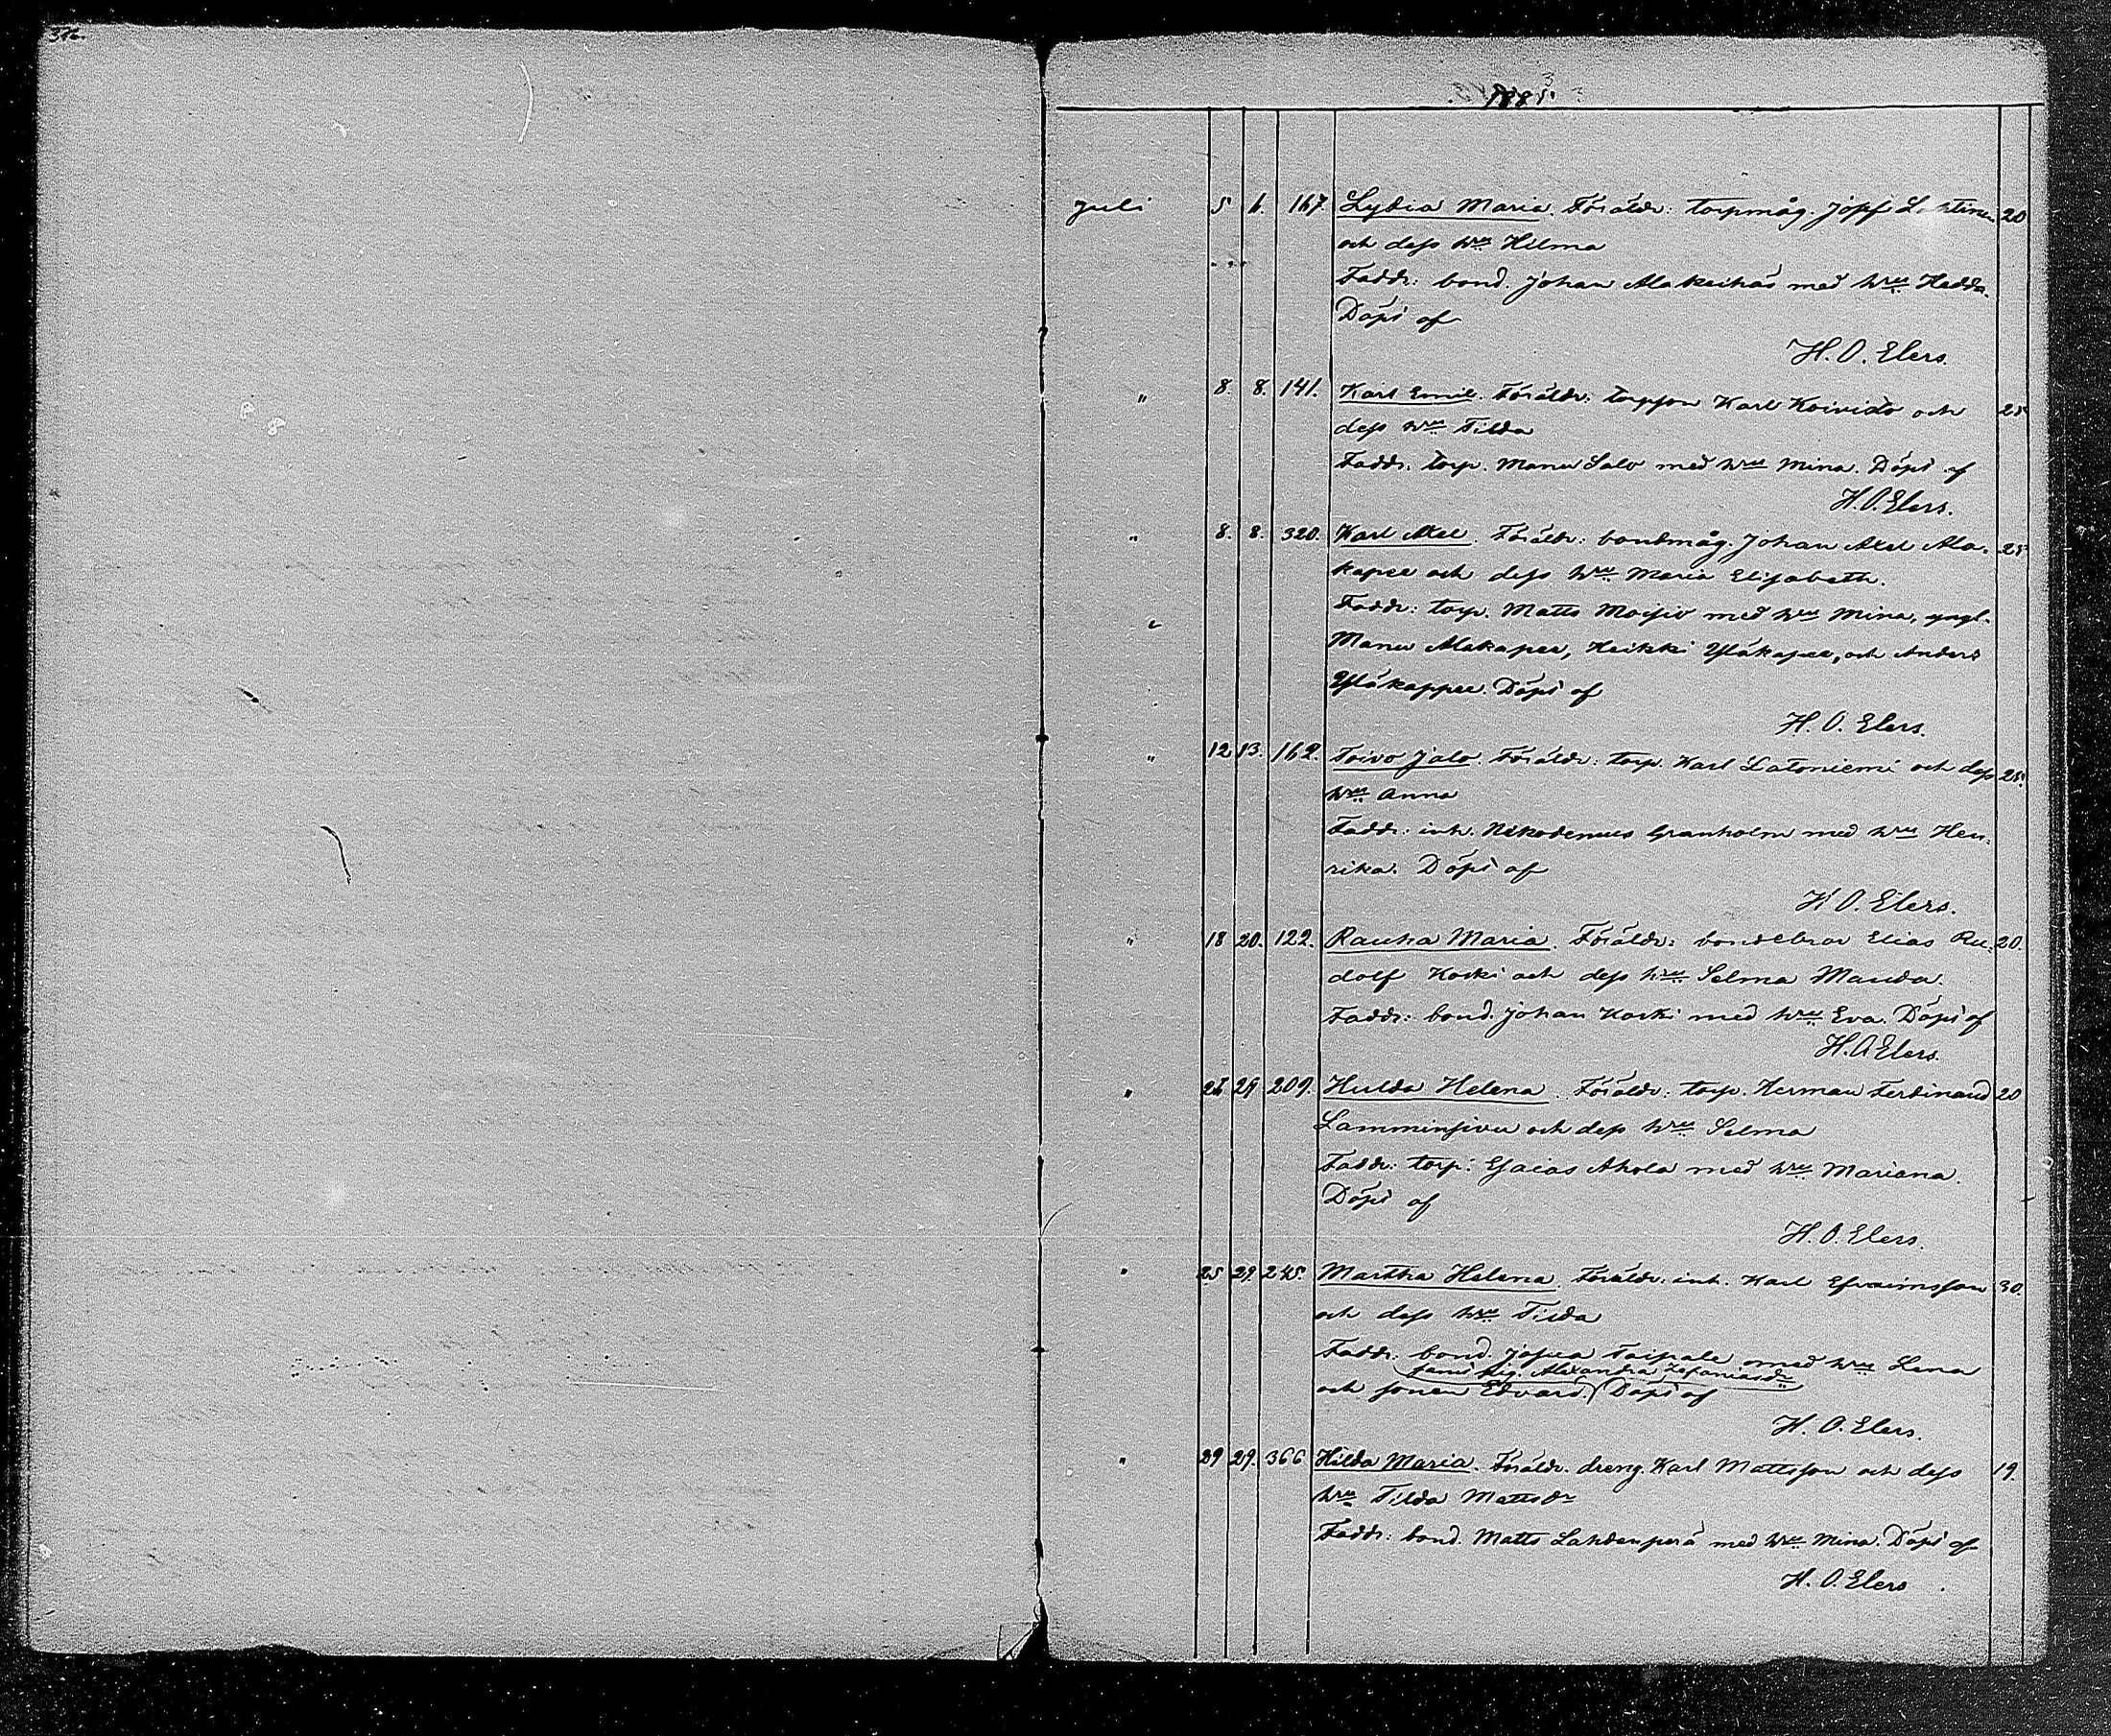 1885.
Juli 5 6. 167 Lydia Maria. Föräldr: torpmåg. Josef Lehtinen 20
och dess hru Hilma
Faddr: bond. Johan Alakeihäs med hru Hedda.
Döpt af
H. O. Elers.
" 8. 8. 141. Karl Emil. Föräldr: torpson Karl Koivisto och 25
dess hru Tilda
Faddr. torp. Manu Salo med hru Mina. Döpt af
H. O. Elers.
" 8. 8. 320. Karl Axel. Föräldr: bondmåg. Johan Axel Ala- 25
kapee och dess hru Maria Elisabeth.
Faddr: torp. Matts Moisio med hru Mina, yngl.
Manu Alakapee, Heikki Yläkapee, och Anders
Yläkappee. Döpt af
H. O. Elers.
" 12 13. 162. Toivo Jalo. Föräldr: torp. Karl Latoniemi och dess 25.
hru Anna
Faddr: inh. Nikodemus Granholm med hru Hen-
rika. Döpt af
H O. Elers.
" 18 20. 122. Rauha Maria. Föräldr: bondebror Elias Ru- 20.
dolf Koski och dess hru Selma Manda.
Faddr: bond. Johan Koski med hru Eva. Döpt af
H. O Elers.
" 26 29 209. Hulda Helena. Föräldr: torp. Herman Ferdinand 20
Lamminsivu och dess hru Selma
Faddr: torp: Esaias Ahola med hru Mariana.
Döpt af
H. O. Elers.
" 25 29. 245. Martha Helena. Föräldr: inh. Karl Efraimsson 30.
och dess hru Tilda
Faddr: bond. Josua Taipale med hru Lena
samt pig. Alexandra Zefaniasdr
och sonen Edvard. Döpt af
H. O. Elers.
" 29 29. 366 Hilda Maria. Föräldr. dreng. Karl Mattsson och dess 19.
hru Tilda Mattsdr
Faddr: bond. Matts Lahdenperä med hru Mina. Döpt af
H. O. Elers